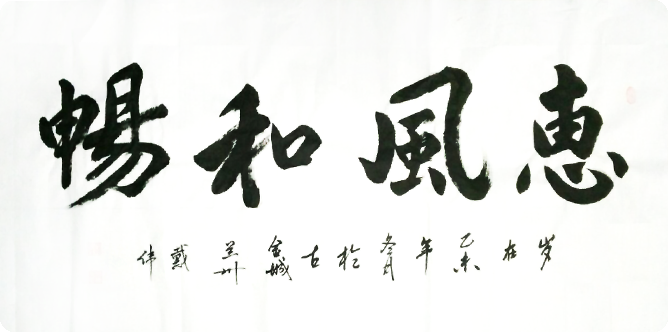 惠風和暢
岁在乙未年冬月於古金城兰州戴伟